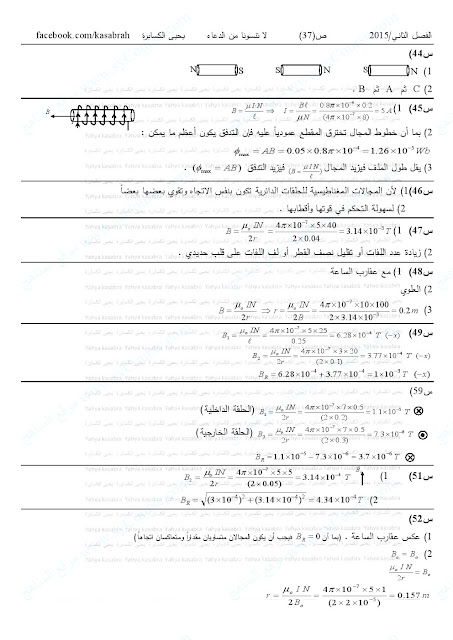 الفصل الثاني/2015 ص(37) لا تنسونا من الدعاء يحيى الكسابرة facebook.com/kasabrah
س44)
1) N S S N S N
2) C ثم A ثم B .
س45) 1) B = μIN/ℓ ⇒ I = Bℓ/μN = 0.8×10⁻⁴×0.2/(4π×10⁻⁷×8) = 5 A
B
2) بما أن خطوط المجال تخترق المقطع عمودياً عليه فإن التدفق يكون أعظم ما يمكن :
ϕmax = AB = 0.05×0.8π×10⁻⁴ = 1.26×10⁻⁵ Wb
3) يقل طول الملف فيزيد المجال (B = μIN/ℓ) فيزيد التدفق (ϕmax = AB) .
س46) 1) لأن المجالات المغناطيسية للحلقات الدائرية تكون بنفس الاتجاه وتقوي بعضها بعضاً
2) لسهولة التحكم في قوتها وأقطابها .
س47) 1) B = μ₀IN/2r = 4π×10⁻⁷×5×40/2×0.04 = 3.14×10⁻³ T
2) زيادة عدد اللفات أو تقليل نصف القطر أو لف اللفات على قلب حديدي .
س48) 1) مع عقارب الساعة
2) العلوي
3) B = μ₀IN/2r ⇒ r = μ₀IN/2B = 4π×10⁻⁷×10×100/2×3.14×10⁻³ = 0.2 m
س49) B₁ = μ₀IN/ℓ = 4π×10⁻⁷×5×25/0.25 = 6.28×10⁻⁴ T (−x)
B₂ = μ₀IN/2r = 4π×10⁻⁷×3×20/(2×0.1) = 3.77×10⁻⁴ T (−x)
B_R = 6.28×10⁻⁴ + 3.77×10⁻⁴ = 1×10⁻³ T (−x)
س59)
(الحلقة الداخلية) B₁ = μ₀IN/2r = 4π×10⁻⁷×7×0.5/(2×0.2) = 1.1×10⁻⁵ T ⊗
(الحلقة الخارجية) B₂ = μ₀IN/2r = 4π×10⁻⁷×7×0.5/(2×0.3) = 7.3×10⁻⁶ T ⊙
B_R = 1.1×10⁻⁵ − 7.3×10⁻⁶ = 3.7×10⁻⁶ T ⊗
س51) 1) B₂ = μ₀IN/2r = 4π×10⁻⁷×5×5/(2×0.05) = 3.14×10⁻⁴ T ↑
2) B_R = √((3×10⁻⁴)² + (3.14×10⁻⁴)²) = 4.34×10⁻⁴ T
س52)
1) عكس عقارب الساعة . (بما أن B_R = 0 فيجب أن يكون المجالان متساويان مقداراً ومتعاكسان اتجاهاً)
2)
μ₀IN/2r = Bₒ
r = μ₀IN/2Bₒ = 4π×10⁻⁷×5×1/(2×2×10⁻⁵) = 0.157 m